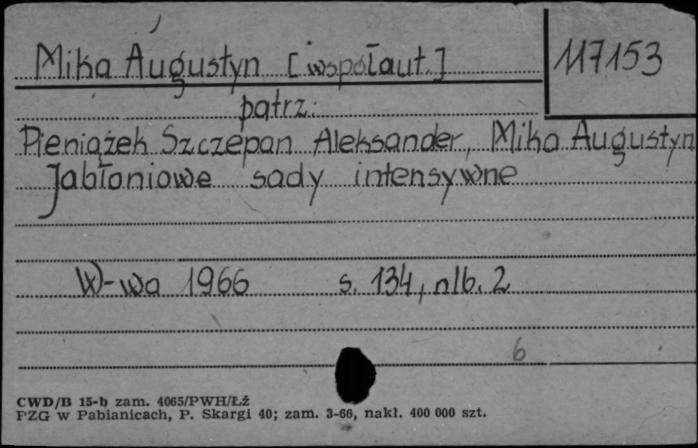 Mika Augustyn [współaut.]
117153
patrz:
Pieniążek Szczepan Aleksander, Mika Augustyn
Jabłoniowe sady intensywne
W-wa 1966 s. 134, nlb. 2
6
CWD/B 15-b zam. 4065/PWH/Łź
PZG w Pabianicach, P. Skargi 40; zam. 3-66, nakł. 400 000 szt.